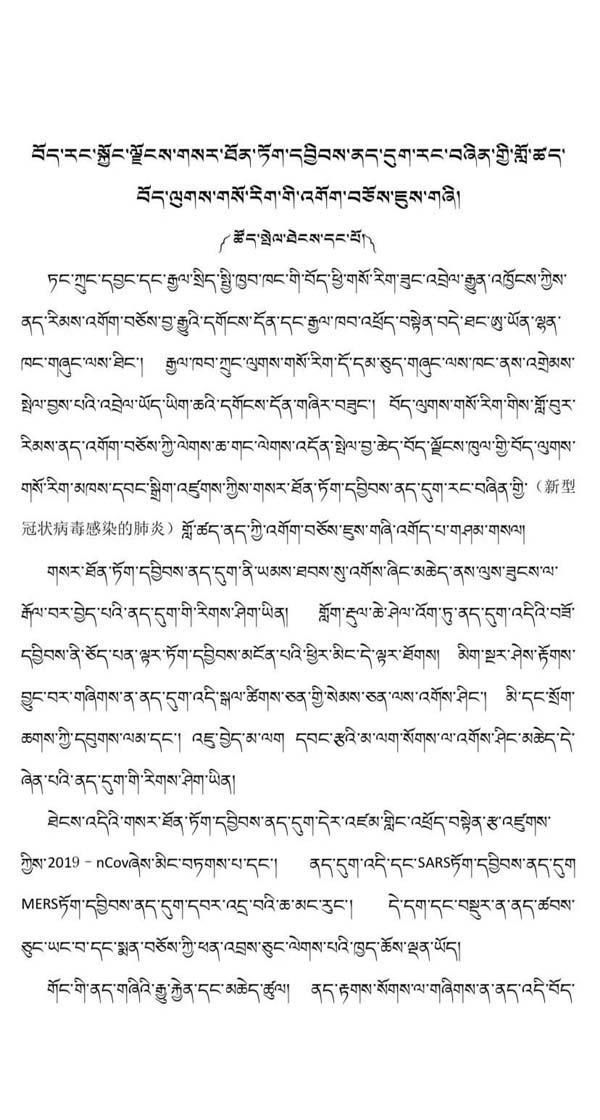 བོད་རང་སྐྱོང་ལྗོངས་གསར་ཐོན་ཏོག་དབྱིབས་ནད་དུག་རང་བཞིན་གྱི་གློ་ཚད་
བོད་ལུགས་གསོ་རིག་གི་འགོག་བཅོས་ཇུས་གཞི།
༼ཚོད་སྤེལ་ཐེངས་དང་པོ།༽
ཏང་ཀྲུང་དབྱང་དང་རྒྱལ་སྲིད་སྤྱི་ཁྱབ་ཁང་གི་བོད་ཕྱི་གསོ་རིག་ཟུང་འབྲེལ་རྒྱུན་འཁྱོངས་ཀྱིས་
ནད་རིམས་འགོག་བཅོས་བྱ་རྒྱུའི་དགོངས་དོན་དང་རྒྱལ་ཁབ་འཕྲོད་བསྟེན་བདེ་ཐང་ཨུ་ཡོན་ལྷན་
ཁང་གཞུང་ལས་ཐིང་། རྒྱལ་ཁབ་ཀྲུང་ལུགས་གསོ་རིག་དོ་དམ་ཅུད་གཞུང་ལས་ཁང་ནས་འགྲེམས་
སྤེལ་བྱས་པའི་འབྲེལ་ཡོད་ཡིག་ཆའི་དགོངས་དོན་གཞིར་བཟུང་། བོད་ལུགས་གསོ་རིག་གིས་གློ་བུར་
རིམས་ནད་འགོག་བཅོས་ཀྱི་ལེགས་ཆ་གང་ལེགས་འདོན་སྤེལ་བྱ་ཆེད་བོད་ལྗོངས་ཁུལ་གྱི་བོད་ལུགས་
གསོ་རིག་མཁས་དབང་སྒྲིག་འཛུགས་ཀྱིས་གསར་ཐོན་ཏོག་དབྱིབས་ནད་དུག་རང་བཞིན་གྱི་（新型
冠状病毒感染的肺炎）གློ་ཚད་ནད་ཀྱི་འགོག་བཅོས་ཇུས་གཞི་འགོད་པ་གཤམ་གསལ།
གསར་ཐོན་ཏོག་དབྱིབས་ནད་དུག་ནི་ཡམས་ཐབས་སུ་འགོས་ཞིང་མཆེད་ནས་ལུས་ཟུངས་ལ་
རྒོལ་བར་བྱེད་པའི་ནད་དུག་གི་རིགས་ཤིག་ཡིན། གློག་རྡུལ་ཆེ་ཤེལ་འོག་ཏུ་ནད་དུག་འདིའི་བཟོ་
དབྱིབས་ནི་ཅོད་པན་ལྟར་ཏོག་དབྱིབས་མངོན་པའི་ཕྱིར་མིང་དེ་ལྟར་ཐོགས། མིག་སྔར་ཤེས་རྟོགས་
བྱུང་བར་གཞིགས་ན་ནད་དུག་འདི་སྒལ་ཚིགས་ཅན་གྱི་སེམས་ཅན་ལས་འགོས་ཤིང་། མི་དང་སྲོག་
ཆགས་ཀྱི་དབུགས་ལམ་དང་། འཇུ་བྱེད་མ་ལག དབང་རྩའི་མ་ལག་སོགས་ལ་འགོས་ཤིང་མཆེད་དེ་
ཞེན་པའི་ནད་དུག་གི་རིགས་ཤིག་ཡིན།
ཐེངས་འདིའི་གསར་ཐོན་ཏོག་དབྱིབས་ནད་དུག་དེར་འཛམ་གླིང་འཕྲོད་བསྟེན་རྩ་འཛུགས་
ཀྱིས་2019-nCovཞེས་མིང་བཏགས་པ་དང་། ནད་དུག་འདི་དང་SARSཏོག་དབྱིབས་ནད་དུག
MERSཏོག་དབྱིབས་ནད་དུག་དབར་འདྲ་བའི་ཆ་མང་རུང་། དེ་དག་དང་བསྡུར་ན་ནད་ཚབས་
ཅུང་ཡང་བ་དང་སྨན་བཅོས་ཀྱི་ཕན་འབྲས་ཅུང་ལེགས་པའི་ཁྱད་ཆོས་ལྡན་ཡོད།
གོང་གི་ནད་གཞིའི་རྒྱུ་རྐྱེན་དང་མཆེད་ཚུལ། ནད་རྟགས་སོགས་ལ་གཞིགས་ན་ནད་འདི་བོད་